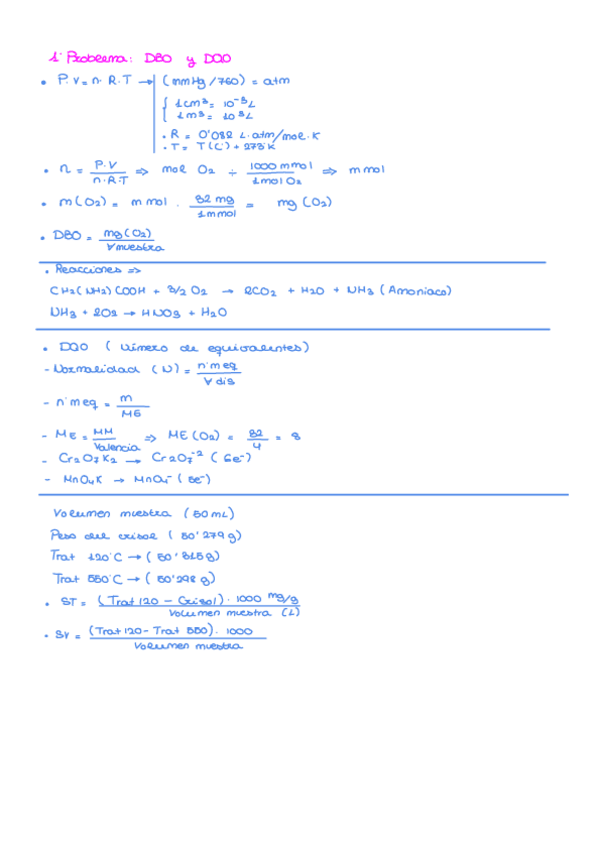 1º Problema: DBO y DQO
• P.V = n. R.T → (mmHg /760) = atm
1cm³ = 10⁻³L
1m³ = 10³L
• R = 0'082 L.atm/mol.K
• T = T(C) + 273'K
• n = P.V / n.R.T ⇒ mol O2 ÷ 1000 mmol / 1mol O2 ⇒ mmol
• m(O2) = mmol . 32 mg / 1mmol = mg (O2)
• DBO = mg(O2) / Vmuestra
• Reacciones ⇒
CH2(NH2)COOH + 3/2 O2 → 2CO2 + H2O + NH3 (Amoniaco)
NH3 + 2O2 → HNO3 + H2O
• DQO (Número de equivalentes)
- Normalidad (N) = nºmeq / V dis
- nºmeq = m / ME
- ME = MM / Valencia ⇒ ME(O2) = 32 / 4 = 8
- Cr2O7K2 → Cr2O7⁻² (6e⁻)
- MnO4K → MnO4⁻ (5e⁻)
Volumen muestra (50mL)
Peso del crisol (50'279g)
Trat 120ºC → (50'315g)
Trat 550ºC → (50'298g)
• ST = (Trat 120 - Crisol) . 1000 mg/g / Volumen muestra (L)
• SV = (Trat 120 - Trat 550) . 1000 / Volumen muestra